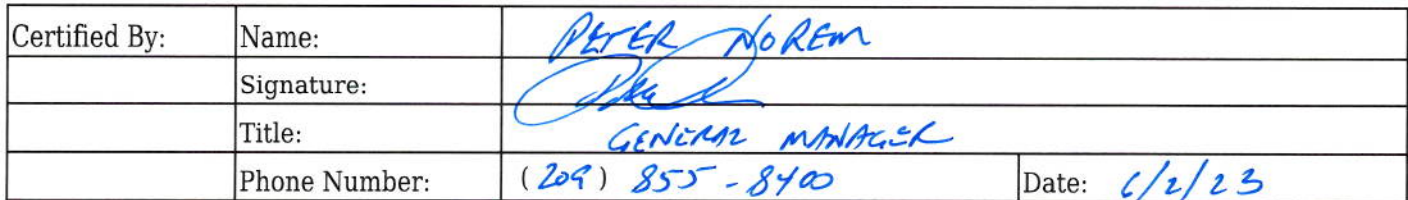 Certified By: Name: PETER NOREM
Signature:
Title: GENERAL MANAGER
Phone Number: (209) 855-8400 Date: 6/2/23